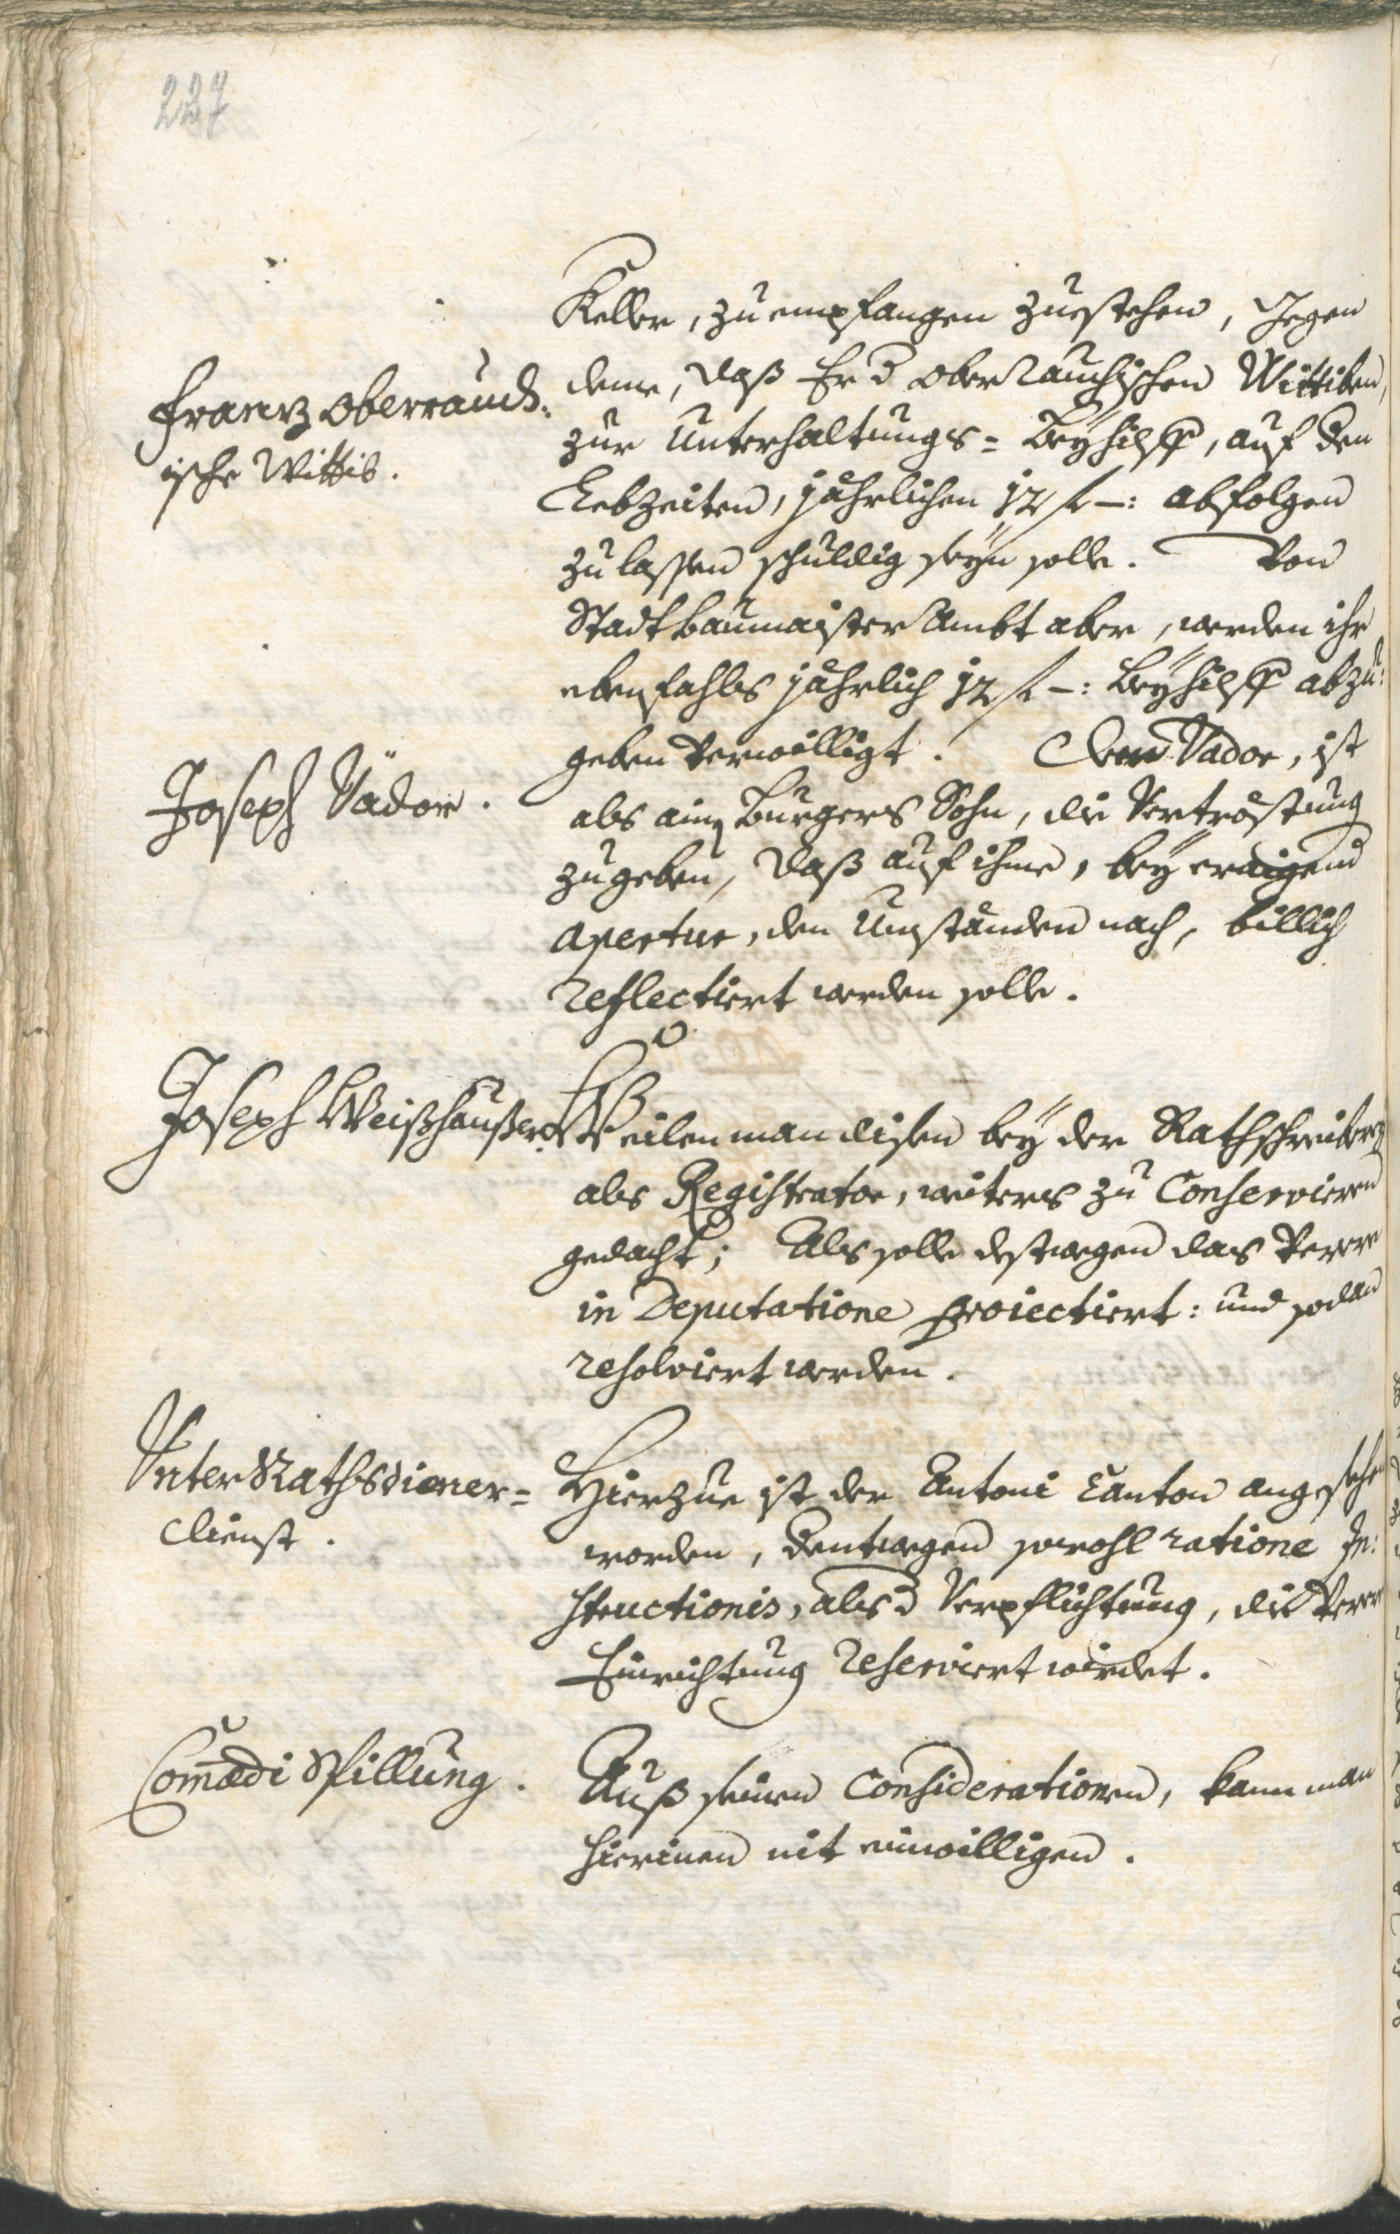 227
Keller, zu empfangen zuestehen, gegen
Franz Oberrauch:
ische Wittib.
deme, daß Er d Oberrauchischen Wittiben,
zur Unterhaltungs= Beyhilff, auf den
Lebzeiten, jährlichen 12 f –: abfolgen
zu lassen schuldig seyn solle. Von
Stadtbaumaister Ambt aber, werden ihr
ebenfahls jährlich 12 f –: Beyhilff abzu:
geben verwilligt. Dem Vador, ist
Joseph Vador.
als ains Burgers Sohn, die Vertröstung
zugeben, daß auf ihme, bey eraigend
apertur, den Umständen nach, billich
reflectiert werden solle.
Joseph Weißhaußer.
Weilen man disen bey der Rathschreiberey
als Registrator, weiters zu Conservieren
gedacht; Als solle destwegen das
in Deputatione proiectiert: und sodan
resolviert werden.
Unter Rathsdiener=
dienst.
Hierzue ist der Antoni Canton angesehen
worden, dentwegen sowohl ratione In:
structionis, als d Verpflichtung, die
Einrichtung reserviert wirdet.
Comœdi Spillung.
Auß seinen Considerationen, kann man
hierinen nit einwilligen.